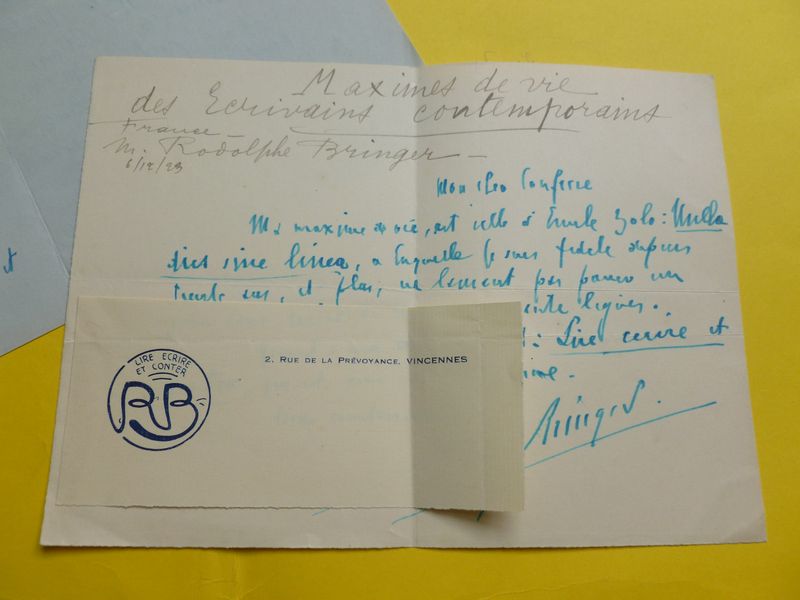 Maximes de vie
des Ecrivains contemporains
France -
M. Rodolphe Bringer -
6/12/23
Mon cher Confrère
Ma maxime de vie, est celle d'Emile Zola : Nulla
dies sine linea, a laquelle je suis fidele depuis
trente ans, et plus, ne laissant pas passer un
lignes.
: Lire ecrire et
Bringer.
LIRE ECRIRE
ET CONTER
RB
2, RUE DE LA PRÉVOYANCE, VINCENNES